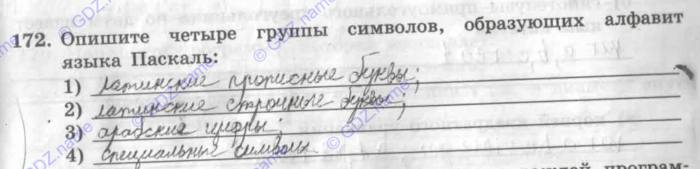 172. Опишите четыре группы символов, образующих алфавит
языка Паскаль:
1) латинские прописные буквы;
2) латинские строчные буквы;
3) арабские цифры;
4) специальные символы